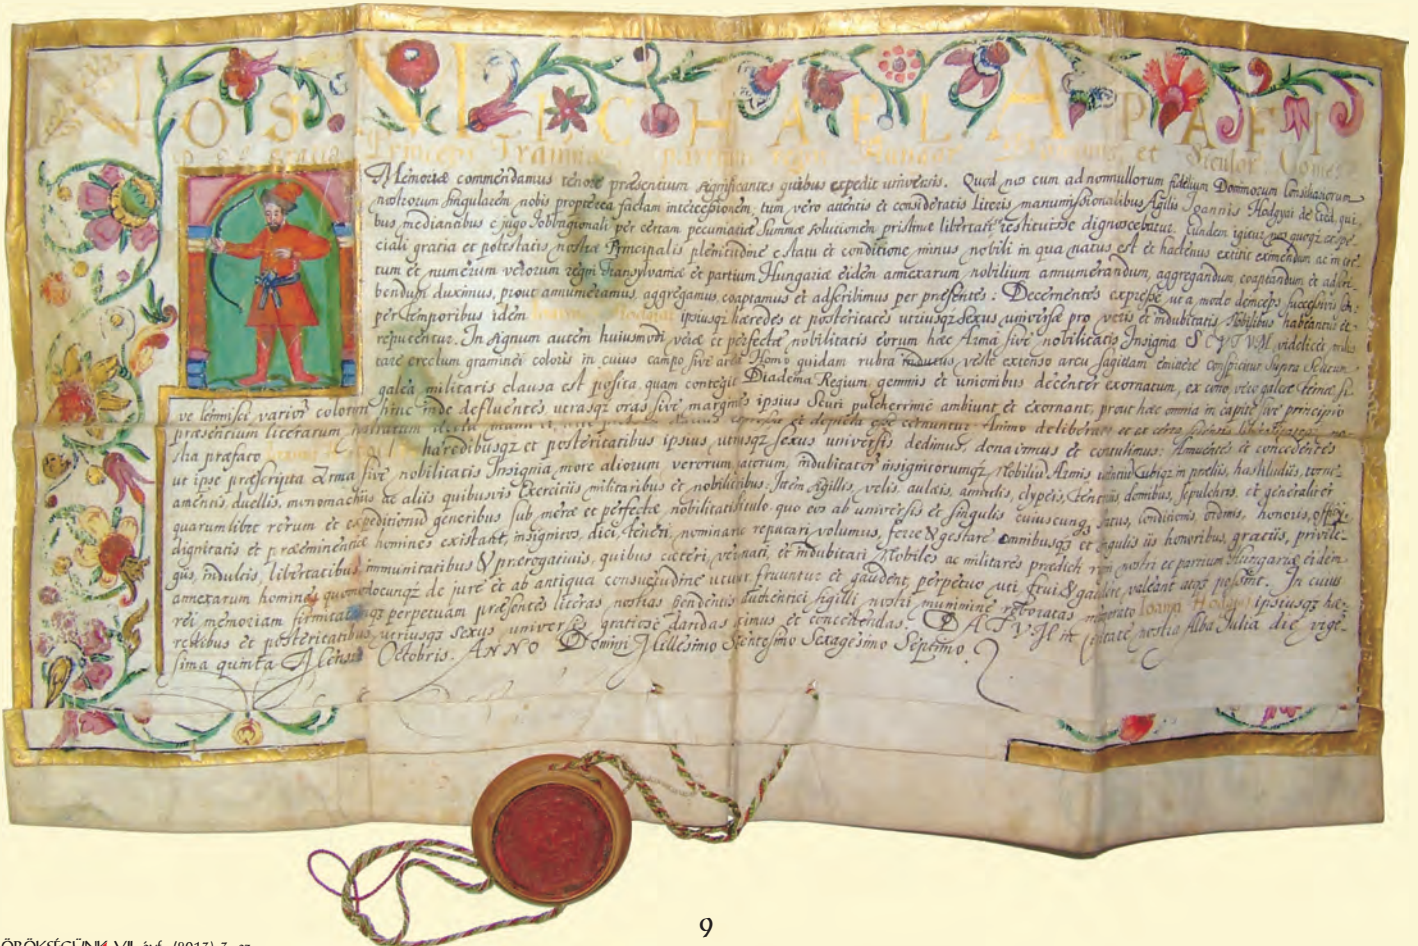 NOS MICHAEL APAFI
Dei gratia Princeps Tranniae partium regni Hungar Dominus et Siculor Comes
Memoriae commendamus tenore praesentium significantes quibus expedit universis. Quod nos cum ad nonnullorum fidelium Dominorum Consiliariorum
nostrorum singularem nobis propterea factam intercessionem, tum vero attentis et consideratis literis manumissionalibus Agilis Joannis Hodgyai de qui
bus mediantibus e jugo Jobbagionali per certam pecuniariae Summae solutionem pristinae libertati restitutus esse dignosceretur. Eundem igitur
ciali gratia et potestatis nostrae Principalis plenitudine e statu et conditione minus nobili in qua natus est et hactenus extitit eximendum ac in coe-
tum et numerum verorum regni Transylvaniae et partium Hungariae eidem annexarum nobilium annumerandum, aggregandum, cooptandum et adscri-
bendum duximus, prout annumeramus, aggregamus, cooptamus et adscribimus per praesentes: Decernentes expresse ut a modo deinceps successivis
per temporibus idem Joannes Hodgyai ipsiusqz haeredes et posteritates utriusqz sexus universae pro veris et indubitatis Nobilibus habeantur et
reputentur. In signum autem huiusmodi verae et perfectae nobilitatis eorum haec Arma sive nobilitatis Insignia SCVTVM videlicet mili-
tare erectum graminei coloris in cuius campo sive area Homo quidam rubra indutus veste extenso arcu sagittam emittere conspicitur Supra Scutum
galea militaris clausa est posita, quam contegit Diadema Regium gemmis et unionibus decenter exornatum, ex cono vero galeae taeniae si-
ve lemnisci variorum colorum hinc inde defluentes, utrasqz oras sive margines ipsius Scuti pulcherrime ambiunt et exornant, prout haec omnia in capite sive principio
praesentium literarum nostrarum et depicta esse cernuntur Animo deliberato et ex certa scientia
stra praefato haeredibusqz et posteritatibus ipsius, utriusqz sexus universis dedimus, donavimus et contulimus; Annuentes et concedentes
ut ipse praescripta Arma sive nobilitatis Insignia, more aliorum verorum indubitatorum insignitorumqz Nobilium Armis utentium ubiqz in praeliis, hastiludiis, torne-
amentis, duellis, monomachiis ac aliis quibusvis Exercitiis militaribus et nobilitaribus: Item sigillis, velis, aulaeis, annulis, clypeis, tentoriis domibus, sepulchris, et generaliter
quarumlibet rerum et expeditionum generibus sub merae et perfectae nobilitatis titulo, quo eos ab universis et singulis cuiuscunqz status, conditionis, ordinis, honoris, officii
dignitatis et praeeminentiae homines existant, insignitos, dici, teneri, nominari reputari volumus, ferre & gestare omnibusqz et singulis iis honoribus, gratiis, privile-
giis, indultis, libertatibus immunitatibus & praerogativis, quibus caeteri, veri nati, et indubitati Nobiles ac militares praedicti regni nostri et partium Hungariae eidem
annexarum homines quomodocunqz de jure et ab antiqua consuetudine utuntur fruuntur et gaudent, perpetuo uti frui & gaudere valeant atqz possint. In cuius
rei memoriam firmitatemqz perpetuam praesentes literas nostras pendentis authentici sigilli nostri munimine roboratas memorato Joanni Hodgyai ipsiusqz hae-
redibus et posteritatibus utriusqz sexus, universis gratiose dandas duximus et concedendas. DATVM in Civitate nostra Alba Julia die vige-
sima quinta Mensis Octobris. ANNO Domini Millesimo Sexcentesimo Sexagesimo Septimo.
9
ÖRÖKSÉGÜNK VII. évf. (2013) 3. sz.